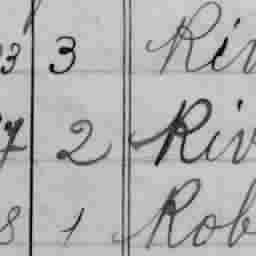 3 3 Riv
7 2 Riv
8 1 Rob